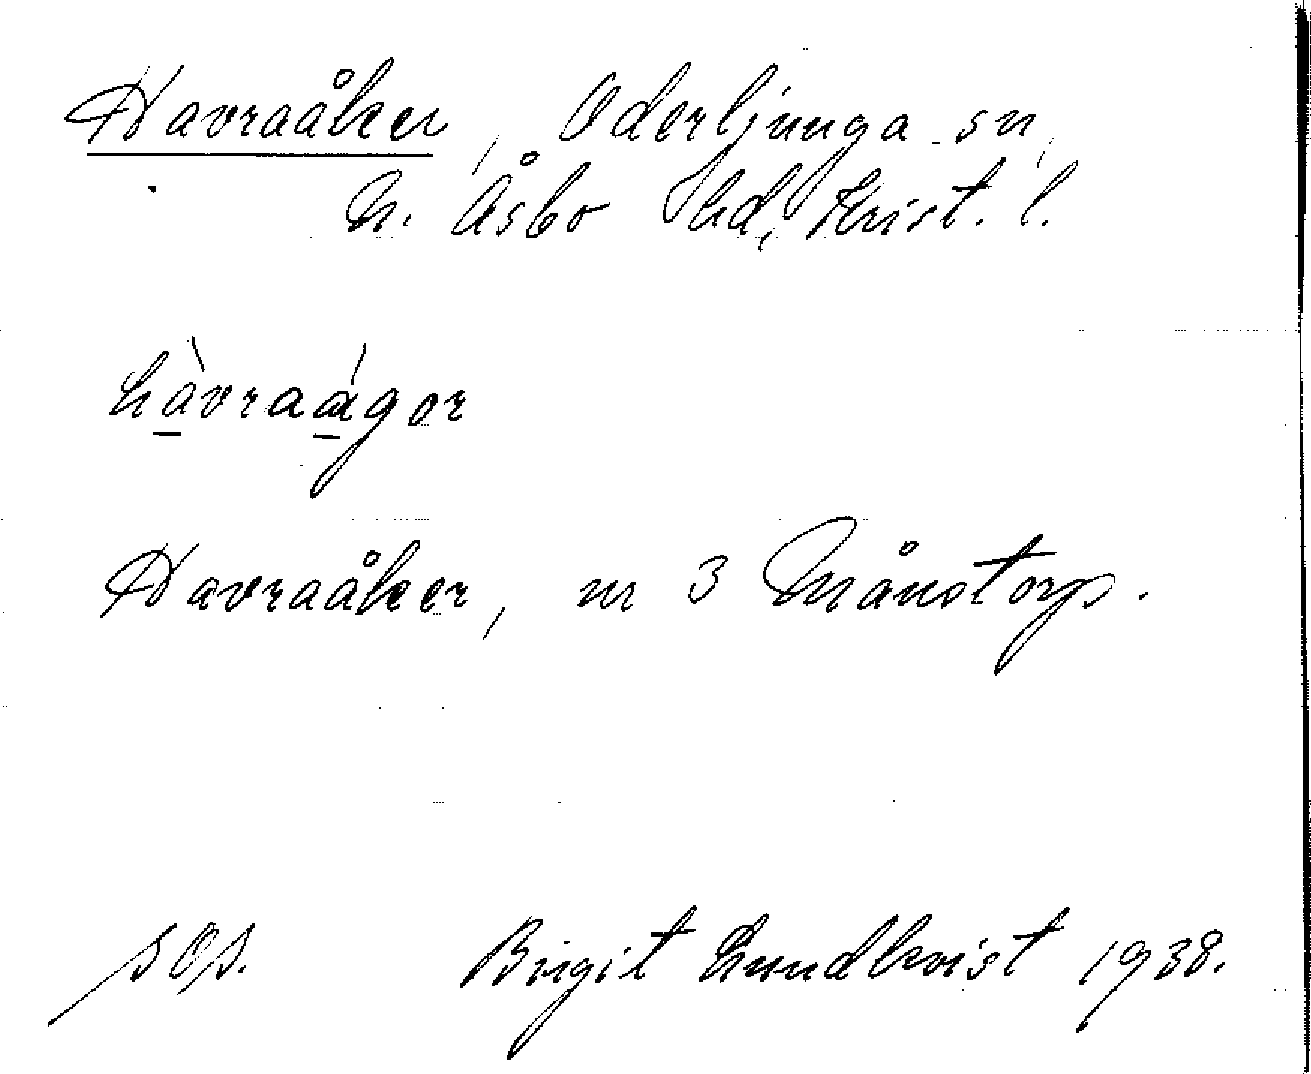 Havraåker, Oderljunga sn,
N. Åsbo hd, Krist. l.
hàvraágor
Havraåker, nr 3 Månstorp.
sOs. Birgit Lundkvist 1938.